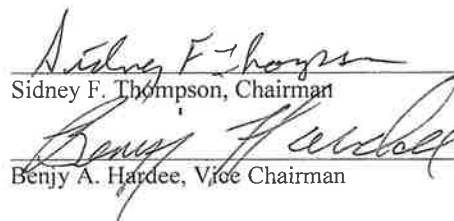 Sidney F Thompson
Sidney F. Thompson, Chairman
Benjy Hardee
Benjy A. Hardee, Vice Chairman